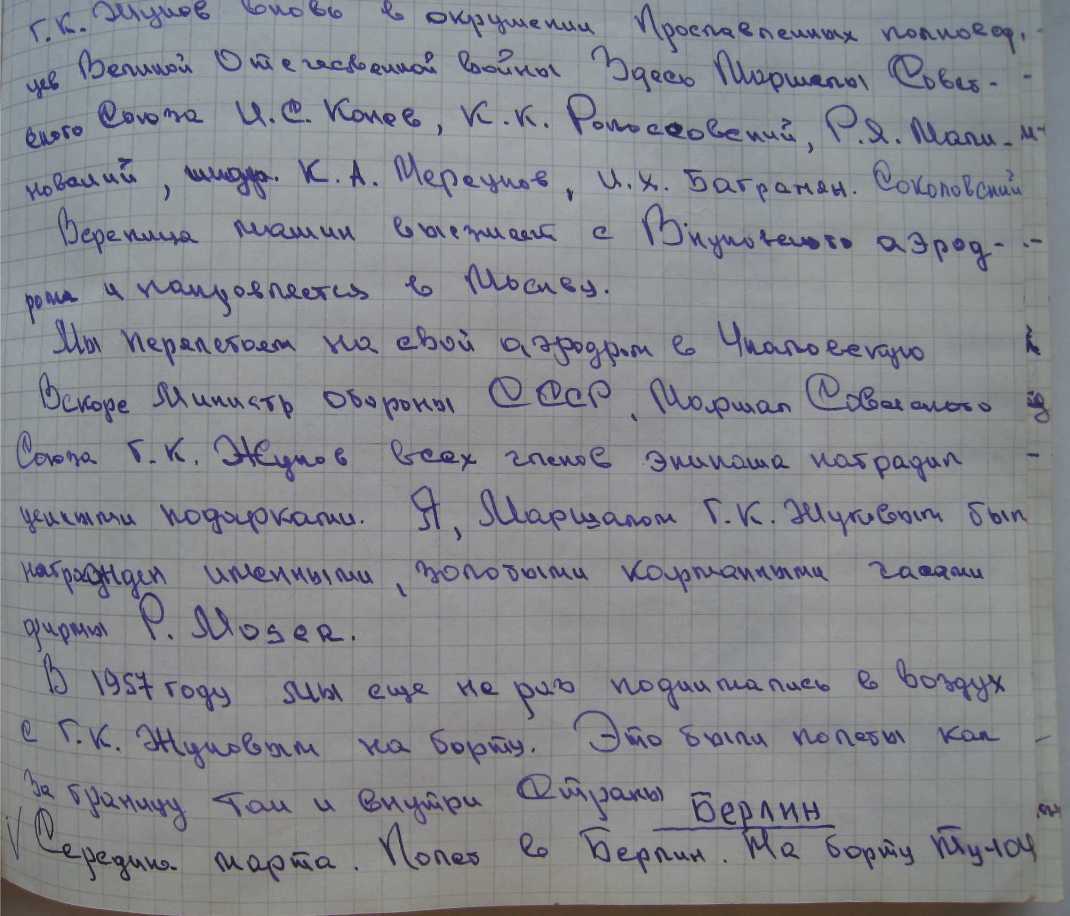 Г.К. Жуков вновь в окружении Прославленных полковод-
цев Великой Отечественной войны Здесь Маршалы Совет-
ского Союза И.С. Конев, К.К. Рокоссовский, Р.Я. Мали-
новский, К.А. Мерецков, И.Х. Баграмян. Соколовский
Вереница машин выезжает с Внуковского аэрод-
рома и направляется в Москву.
Мы перелетаем на свой аэродром в Чкаловскую
Вскоре Министр обороны СССР, Маршал Советского
Союза Г.К. Жуков всех членов экипажа наградил
ценными подарками. Я, Маршалом Г.К. Жуковым был
награжден именными, золотыми карманными часами
фирмы P. Moser.
В 1957 году мы еще не раз поднимались в воздух
с Г.К. Жуковым на борту. Это были полеты как
за границу так и внутри Страны
Берлин
Середина марта. Полет в Берлин. На борту